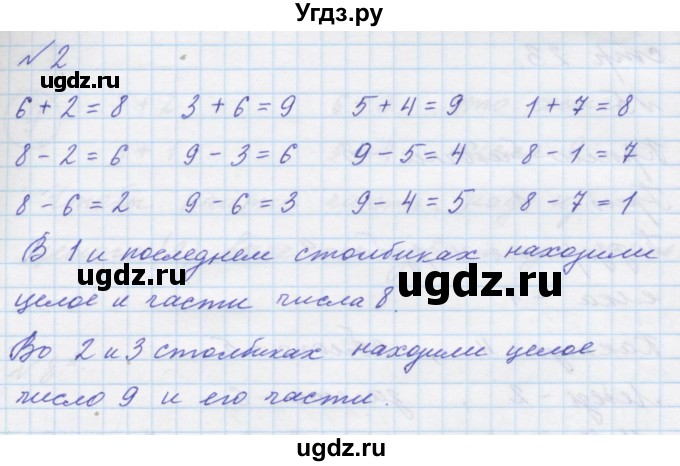 Угдз.ру
№ 2
ugdz.ru
6 + 2 = 8 3 + 6 = 9 5 + 4 = 9 1 + 7 = 8
ugdz.ru
8 - 2 = 6 9 - 3 = 6 9 - 5 = 4 8 - 1 = 7
8 - 6 = 2 9 - 6 = 3 9 - 4 = 5 8 - 7 = 1
В 1 и последнем столбиках находили
целое и части числа 8.
ugdz.ru
ugdz.ru
Во 2 и 3 столбиках находили целое
число 9 и его части.
ugdz.ru
ugdz.ru